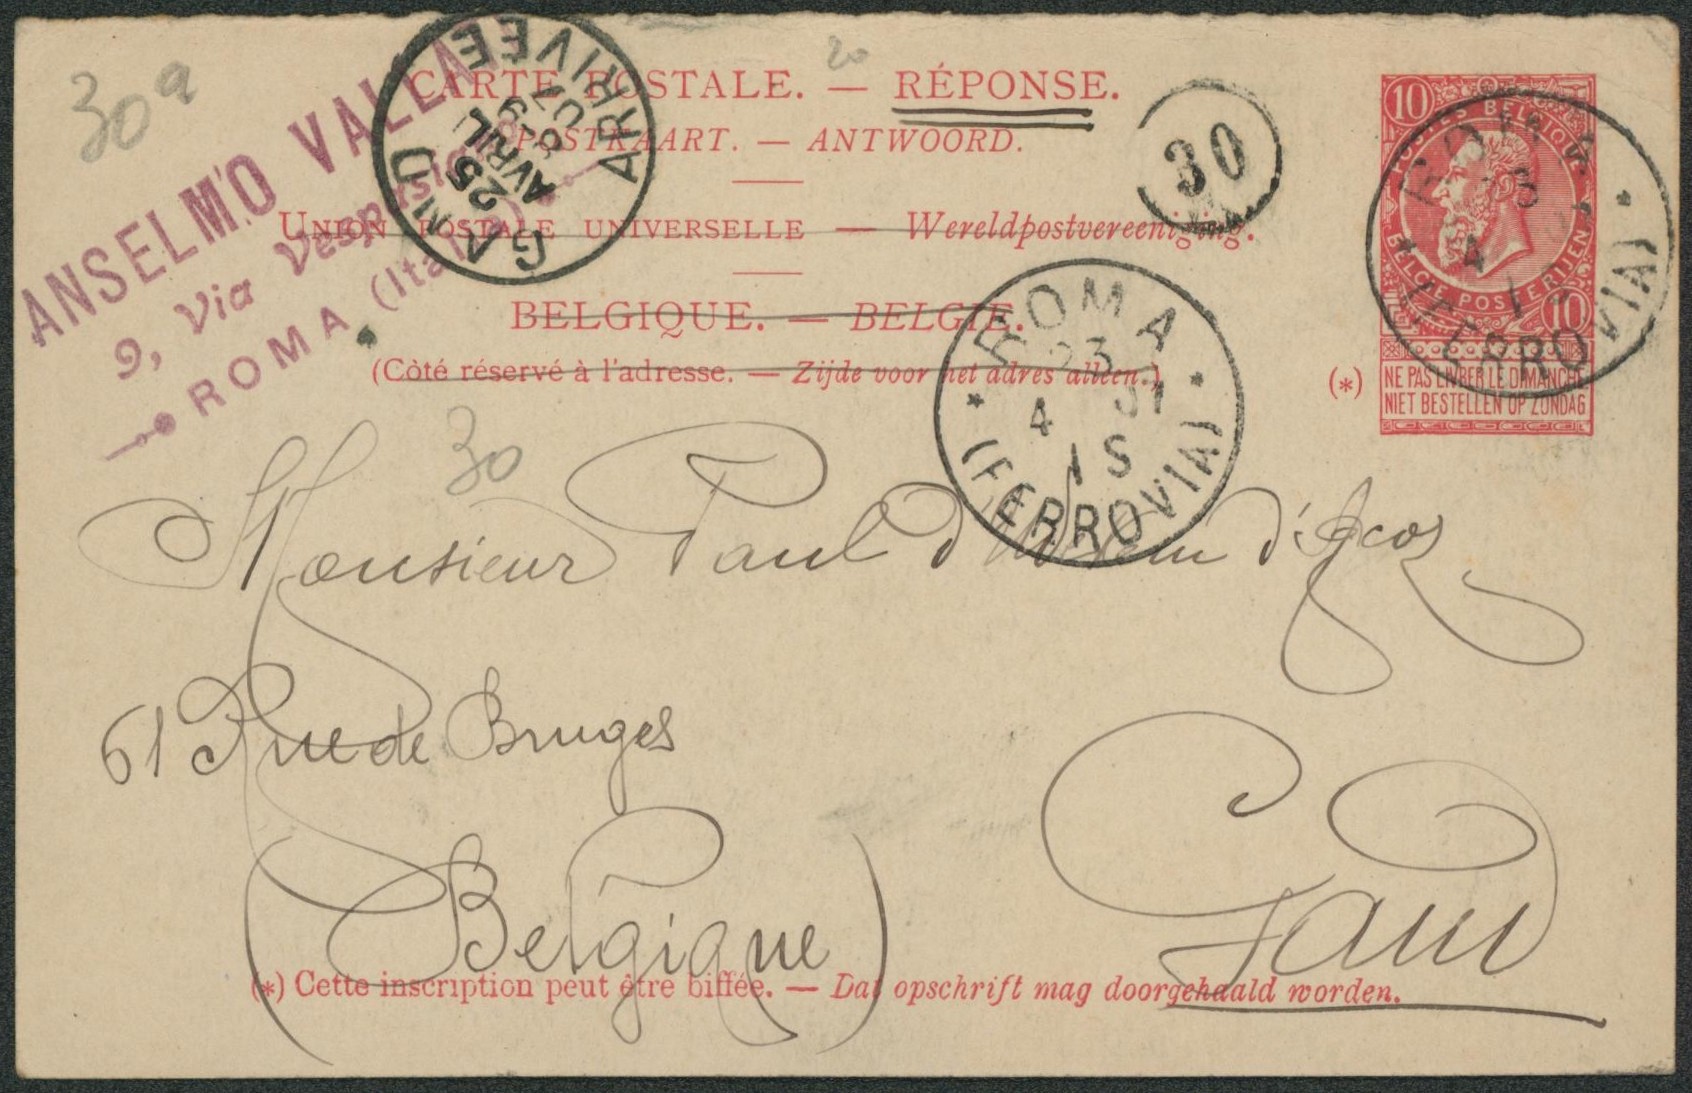 30 a
20
CARTE POSTALE. — RÉPONSE.
POSTKAART. — ANTWOORD.
UNION POSTALE UNIVERSELLE — Wereldpostvereeniging.
BELGIQUE. — BELGIE.
(Côté réservé à l'adresse. — Zijde voor het adres alleen.)
ANSELMO
9, Via
ROMA (Italia)
GAND
25
AVRIL
ARRIVÉE
30
10
POSTES BELGIQUE
BELGIE POSTERIJEN
10
(*)
NE PAS LIVRER LE DIMANCHE
NIET BESTELLEN OP ZONDAG
ROMA
4
1 S
(FERROVIA)
ROMA
23
4
1 S
(FERROVIA)
30
Monsieur Paul
61 Rue de Bruges
Gand
(Belgique)
(*) Cette inscription peut être biffée. — Dat opschrift mag doorgehaald worden.